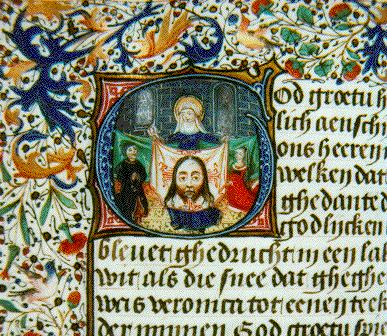 God groetu h
lich aensch
ons heeren
welken dat
ghedante d
godlijcken
bleuet ghedrucht in een la
wit als die snee dat ghegh
was veronica tot eenen teek
der minnen God groet